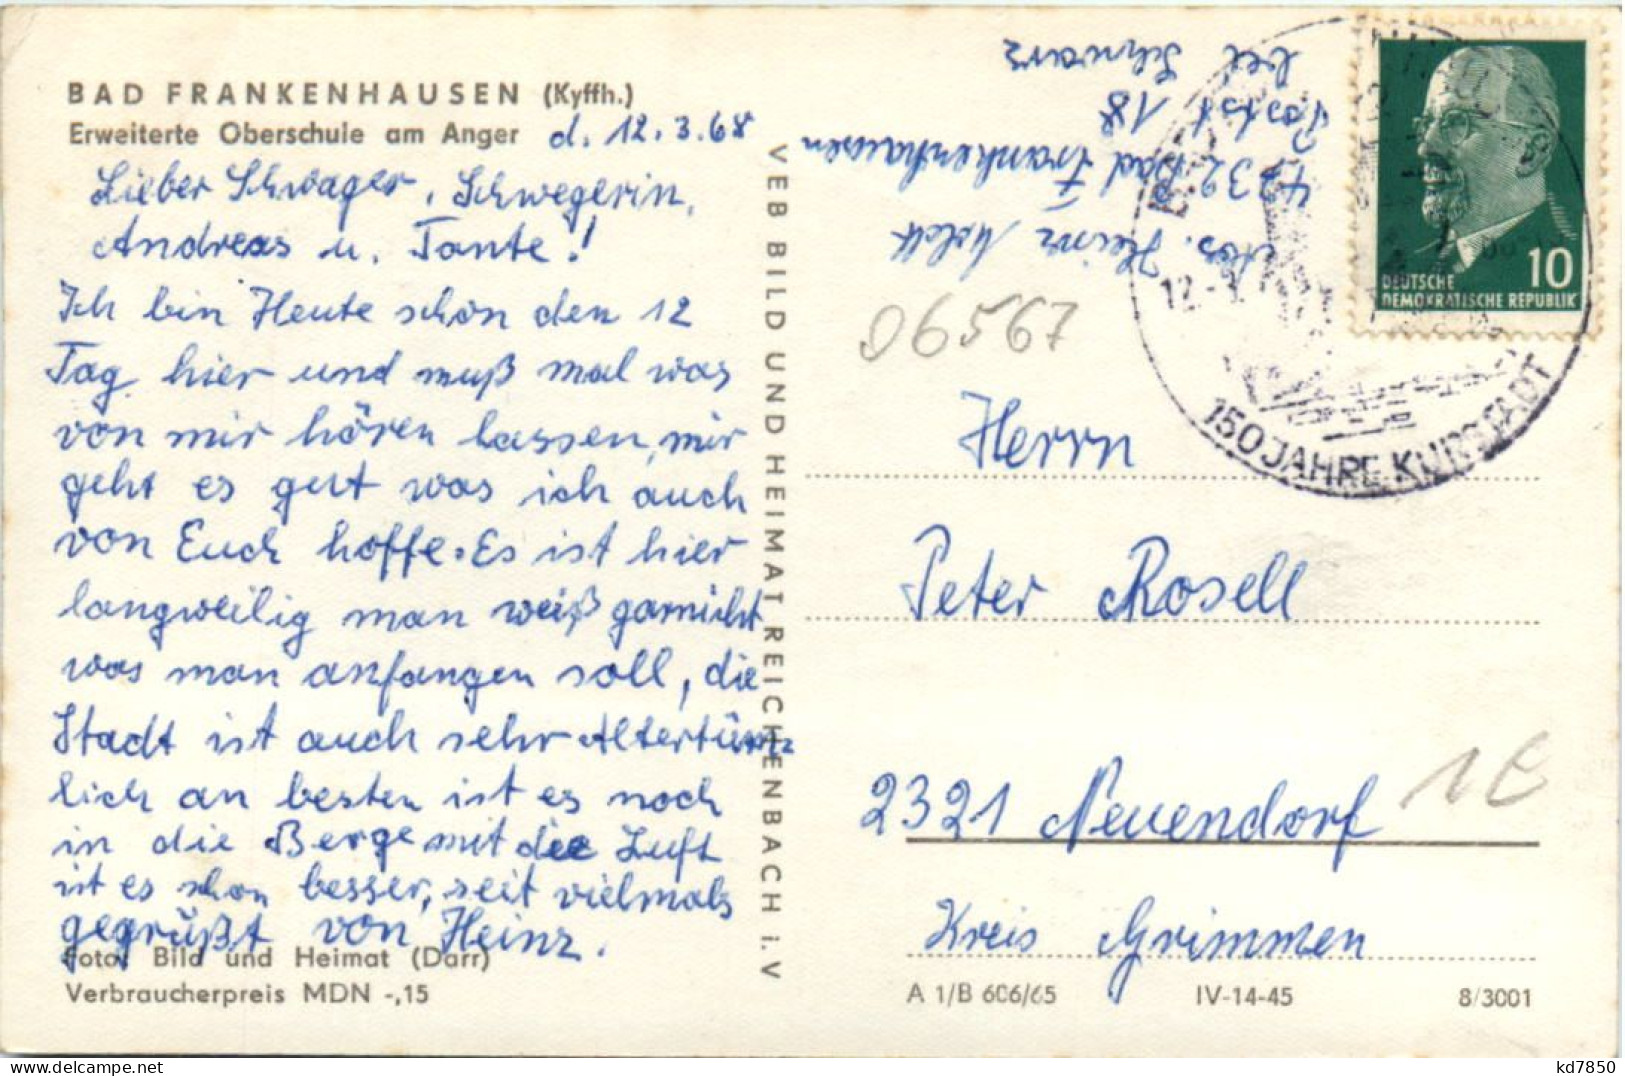 BAD FRANKENHAUSEN (Kyffh.)
Erweiterte Oberschule am Anger
d. 12.3.68
Lieber Schwager, Schwegerin,
Andreas u. Tante!
Ich bin Heute schon den 12
Tag hier und muß mal was
von mir hören lassen, mir
geht es gut was ich auch
von Euch hoffe. Es ist hier
langweilig man weiß garnicht
was man anfangen soll, die
Stadt ist auch sehr Altertüm
lich an besten ist es noch
in die Berge mit die Luft
ist es schon besser, seit vielmals
gegrüßt von Heinz.
Foto: Bild und Heimat (Darr)
Verbraucherpreis MDN -,15
VEB BILD UND HEIMAT REICHENBACH i. V
Abs. Heinz
4732 Bad Frankenhausen
Postst 18
bei Schwarz
06567
DEUTSCHE
DEMOKRATISCHE REPUBLIK
10
12.-3.
150 JAHRE KURSTADT
Herrn
Peter Rosell
2321 Neuendorf
1€
Kreis Grimmen
A 1/B 606/65 IV-14-45 8/3001
kd7850